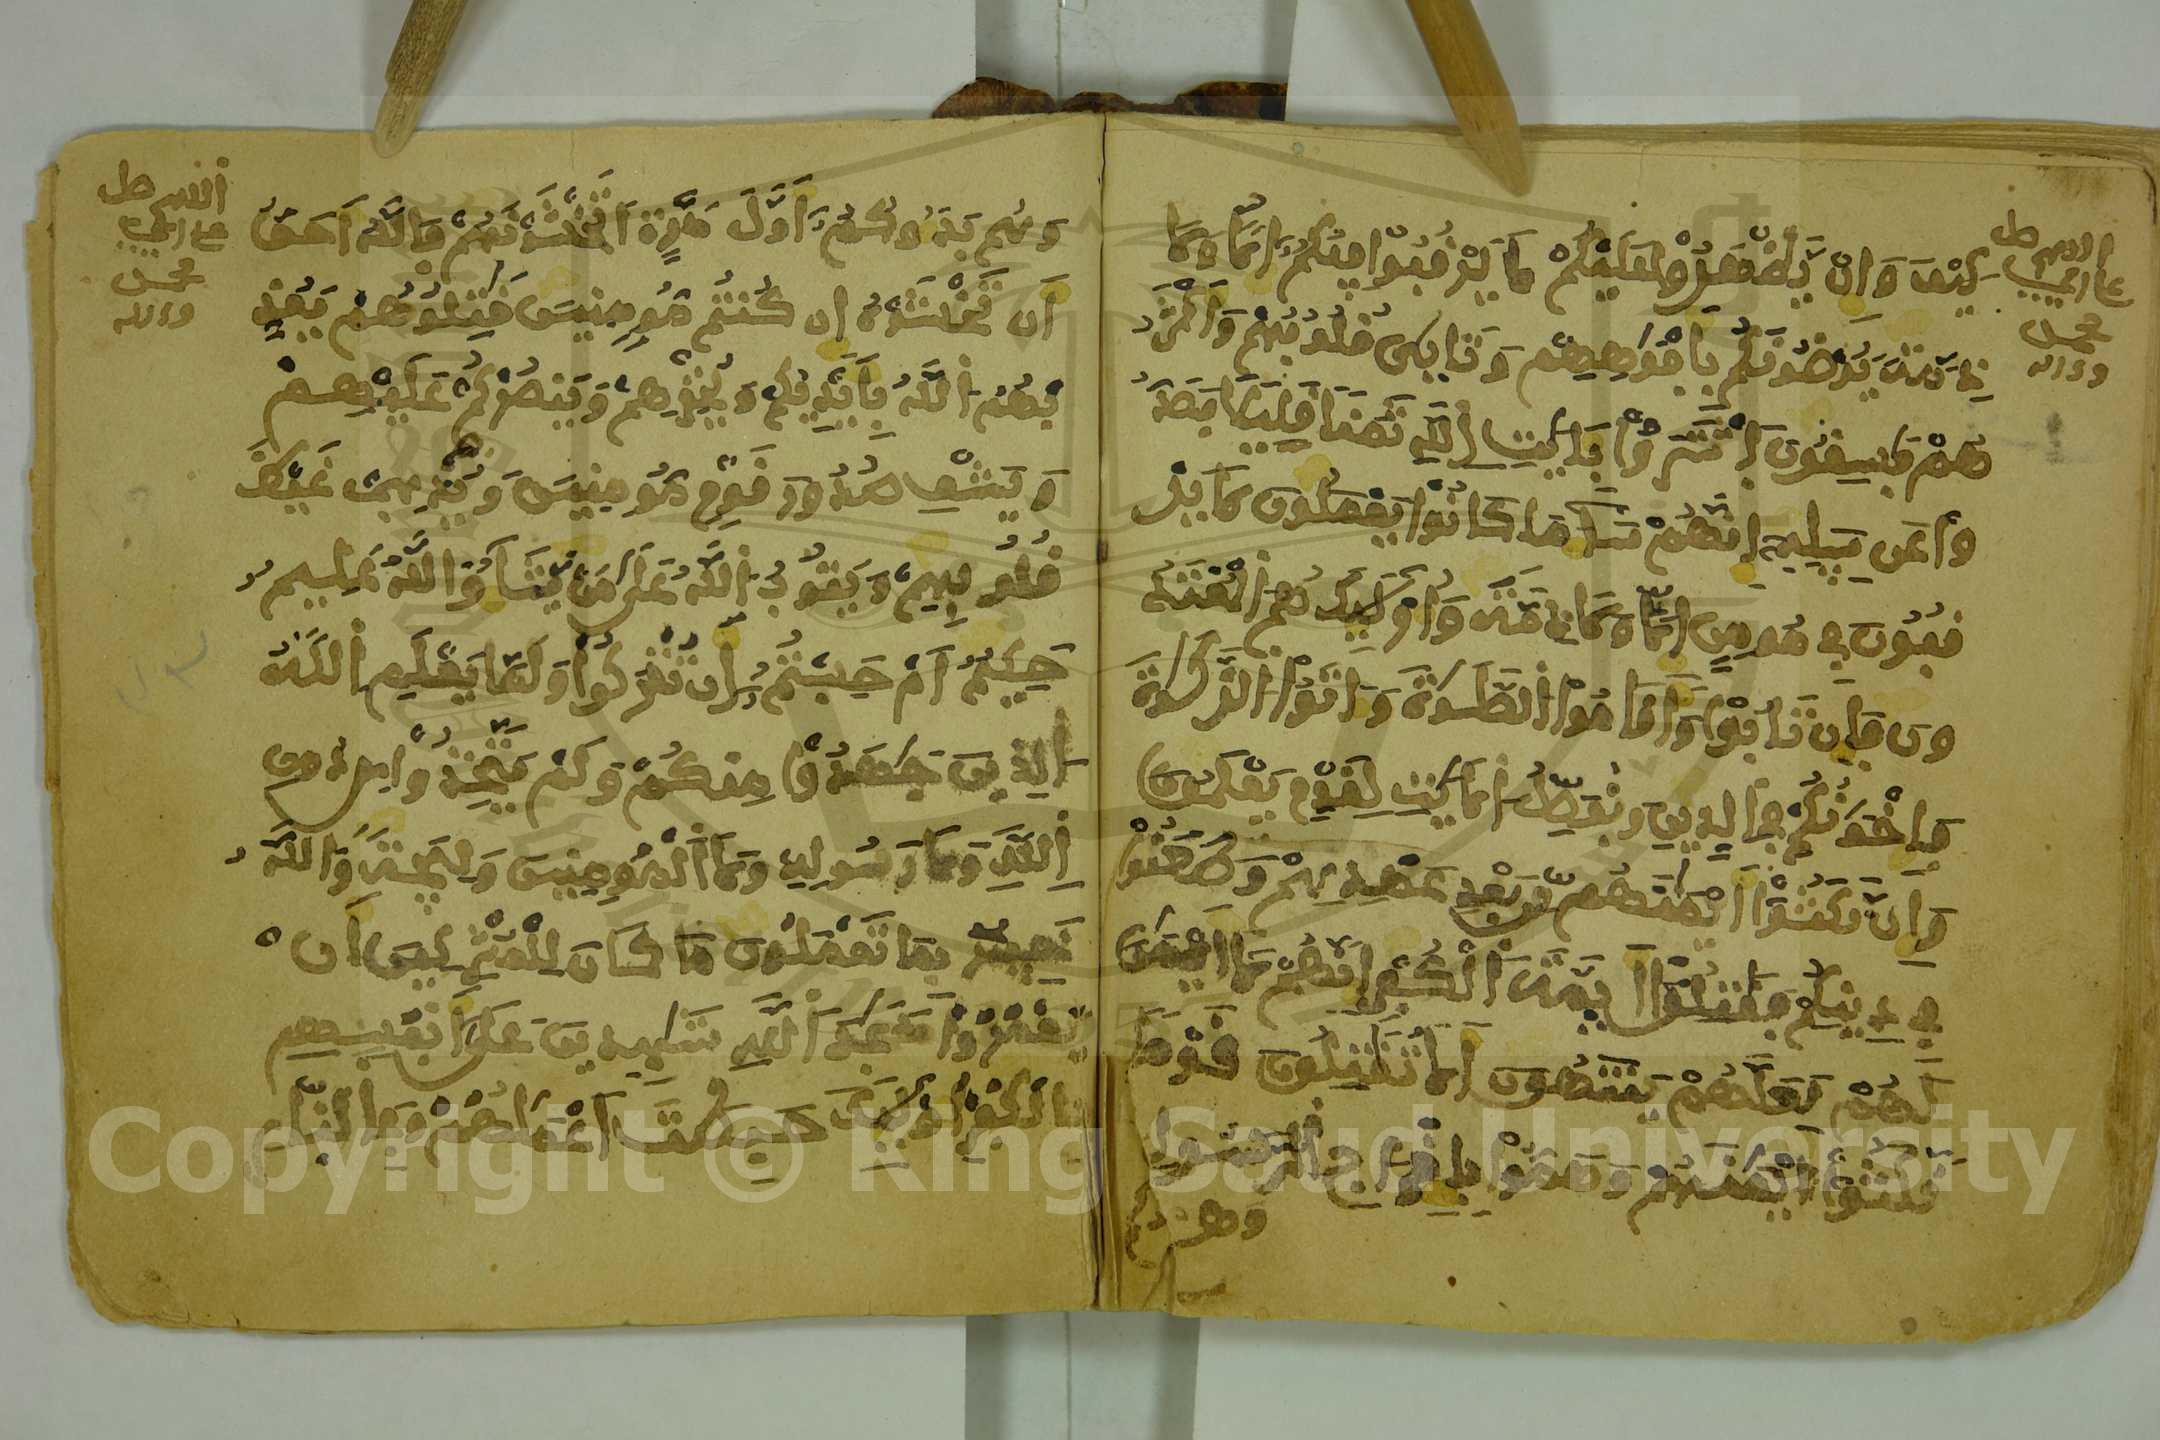 اللهم صل
على النبي
محمد
وءاله
كيف وان يظهروا عليكم لا يرقبوا فيكم إلا ولا
ذمة يرضونكم بافوههم وتابى قلوبهم واكثر
هم فسقون اشتروا بايت الله ثمنا قليلا فصد
وا عن سبيله انهم ساء ما كانوا يعملون لا ير
قبون في مومن إلا ولا ذمة واوليك هم المعتد
ون فان تابوا واقاموا الصلوة واتوا الزكوة
فاخونكم في الدين ونفصل الايت لقوم يعلمون
وان نكثوا ايمنهم من بعد عهدهم وطعنوا
في دينكم فقتلوا ايمة الكفر انهم لا ايمن
لهم لعلهم ينتهون الا تقتلون قوما
نكثوا ايمنهم وهموا باخراج الرسول
وهم
اللهم صل
على النبي
محمد
وءاله
وهم بدءوكم اول مرة اتخشونهم فالله احق
ان تخشوه ان كنتم مومنين قتلوهم يعذ
بهم الله بايديكم ويخزهم وينصركم عليهم
ويشف صدور قوم مومنين ويذهب غيظ
قلوبهم ويتوب الله على من يشاء والله عليم
حكيم ام حسبتم ان تتركوا ولما يعلم الله
الذين جهدوا منكم ولم يتخذوا من دون
الله ولا رسوله ولا المومنين وليجة والله
خبير بما تعملون ما كان للمشركين ان
يعمروا مسجد الله شهدين على انفسهم
بالكفر اوليك حبطت اعملهم وفي النار
Copyright © King Saud University